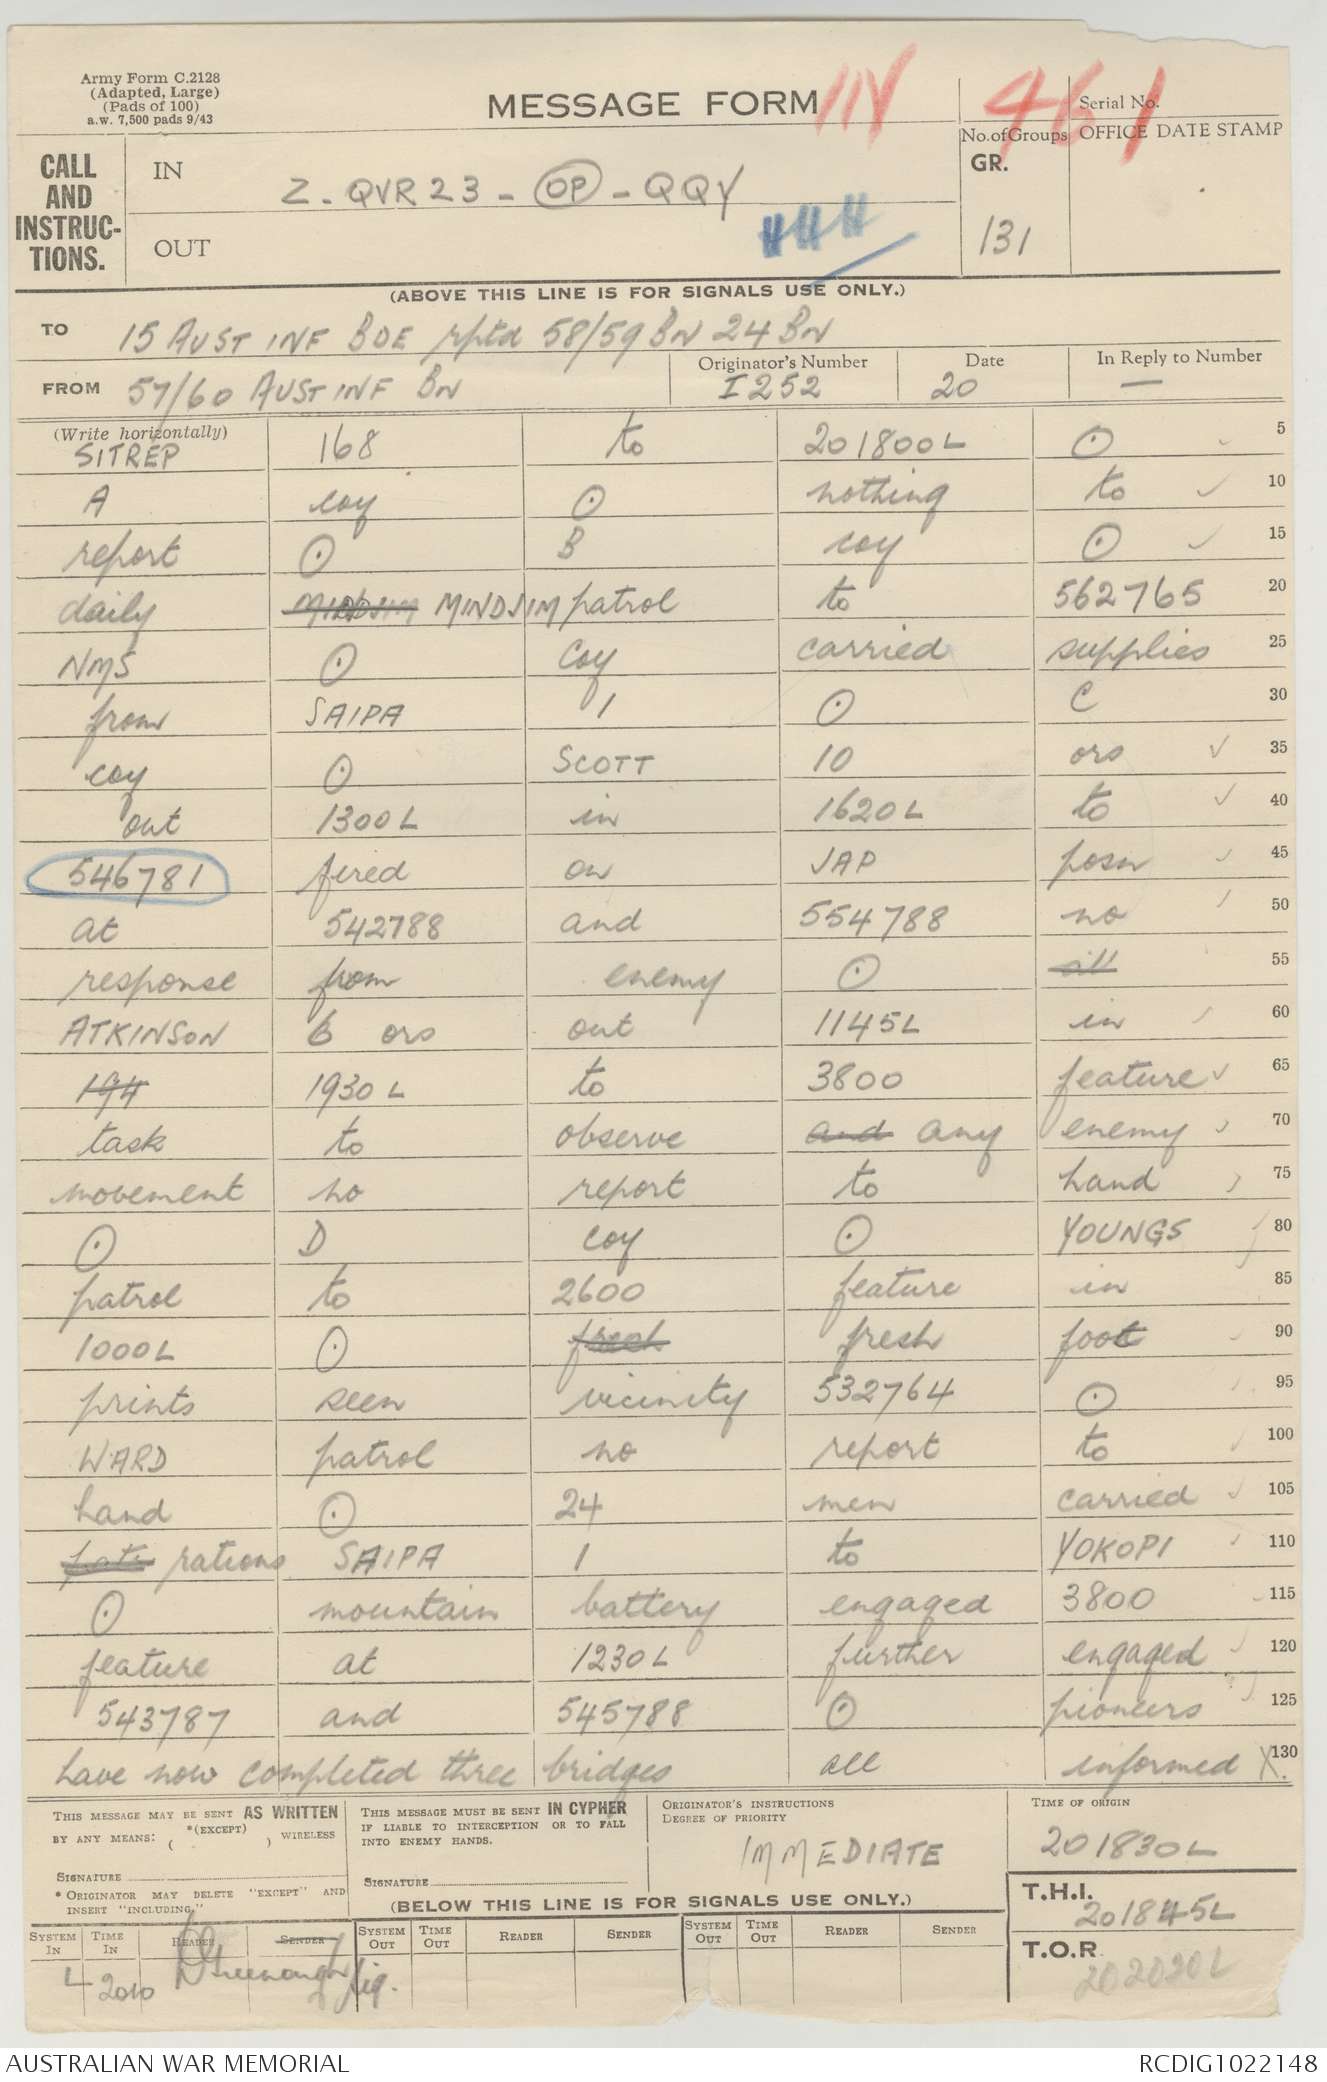 Army Form C.2128
(Adapted, Large)
(Pads of 100)
a.w. 7,500 pads 9/43
MESSAGE FORM
461
Serial No.
No. of Groups OFFICE DATE STAMP
CALL AND INSTRUCTIONS.
IN
GR.
Z - QVR 23 - OP - QQY
OUT
131
(ABOVE THIS LINE IS FOR SIGNALS USE ONLY.)
TO 15 AUST INF BDE rptd 58/59 BN 24 BN
Originator's Number Date In Reply to Number
FROM 57/60 AUST INF BN I252 20 —
(Write horizontally)
SITREP 168 to 201800L ⊙ 5
A coy ⊙ nothing to 10
report ⊙ B coy ⊙ 15
daily MINDSIM MINDSIM patrol to 562765 20
NMS ⊙ Coy carried supplies 25
from SAIPA 1 ⊙ C 30
coy ⊙ SCOTT 10 ors 35
out 1300L in 1620L to 40
546781 fired on JAP posn 45
at 542788 and 554788 no 50
response from enemy ⊙ 55
ATKINSON 6 ors out 1145L in 60
194 1930L to 3800 feature 65
task to observe and any enemy 70
movement no report to hand 75
⊙ D coy ⊙ YOUNGS 80
patrol to 2600 feature in 85
1000L ⊙ fresh fresh foot 90
prints seen vicinity 532764 ⊙ 95
WARD patrol no report to 100
hand ⊙ 24 men carried 105
rations SAIPA 1 to YOKOPI 110
⊙ mountain battery engaged 3800 115
feature at 1230L further engaged 120
543787 and 545788 ⊙ pioneers 125
have now completed three bridges all informed 130
THIS MESSAGE MAY BE SENT AS WRITTEN
BY ANY MEANS: *(EXCEPT) ( ) WIRELESS
SIGNATURE
* ORIGINATOR MAY DELETE "EXCEPT" AND
INSERT "INCLUDING."
THIS MESSAGE MUST BE SENT IN CYPHER
IF LIABLE TO INTERCEPTION OR TO FALL
INTO ENEMY HANDS.
SIGNATURE
ORIGINATOR'S INSTRUCTIONS
DEGREE OF PRIORITY
IMMEDIATE
TIME OF ORIGIN
201830L
(BELOW THIS LINE IS FOR SIGNALS USE ONLY.)
T.H.I.
201845L
SYSTEM IN TIME IN READER SENDER SYSTEM OUT TIME OUT READER SENDER SYSTEM OUT TIME OUT READER SENDER
T.O.R.
202020L
L 2010 Sig.
AUSTRALIAN WAR MEMORIAL
RCDIG1022148